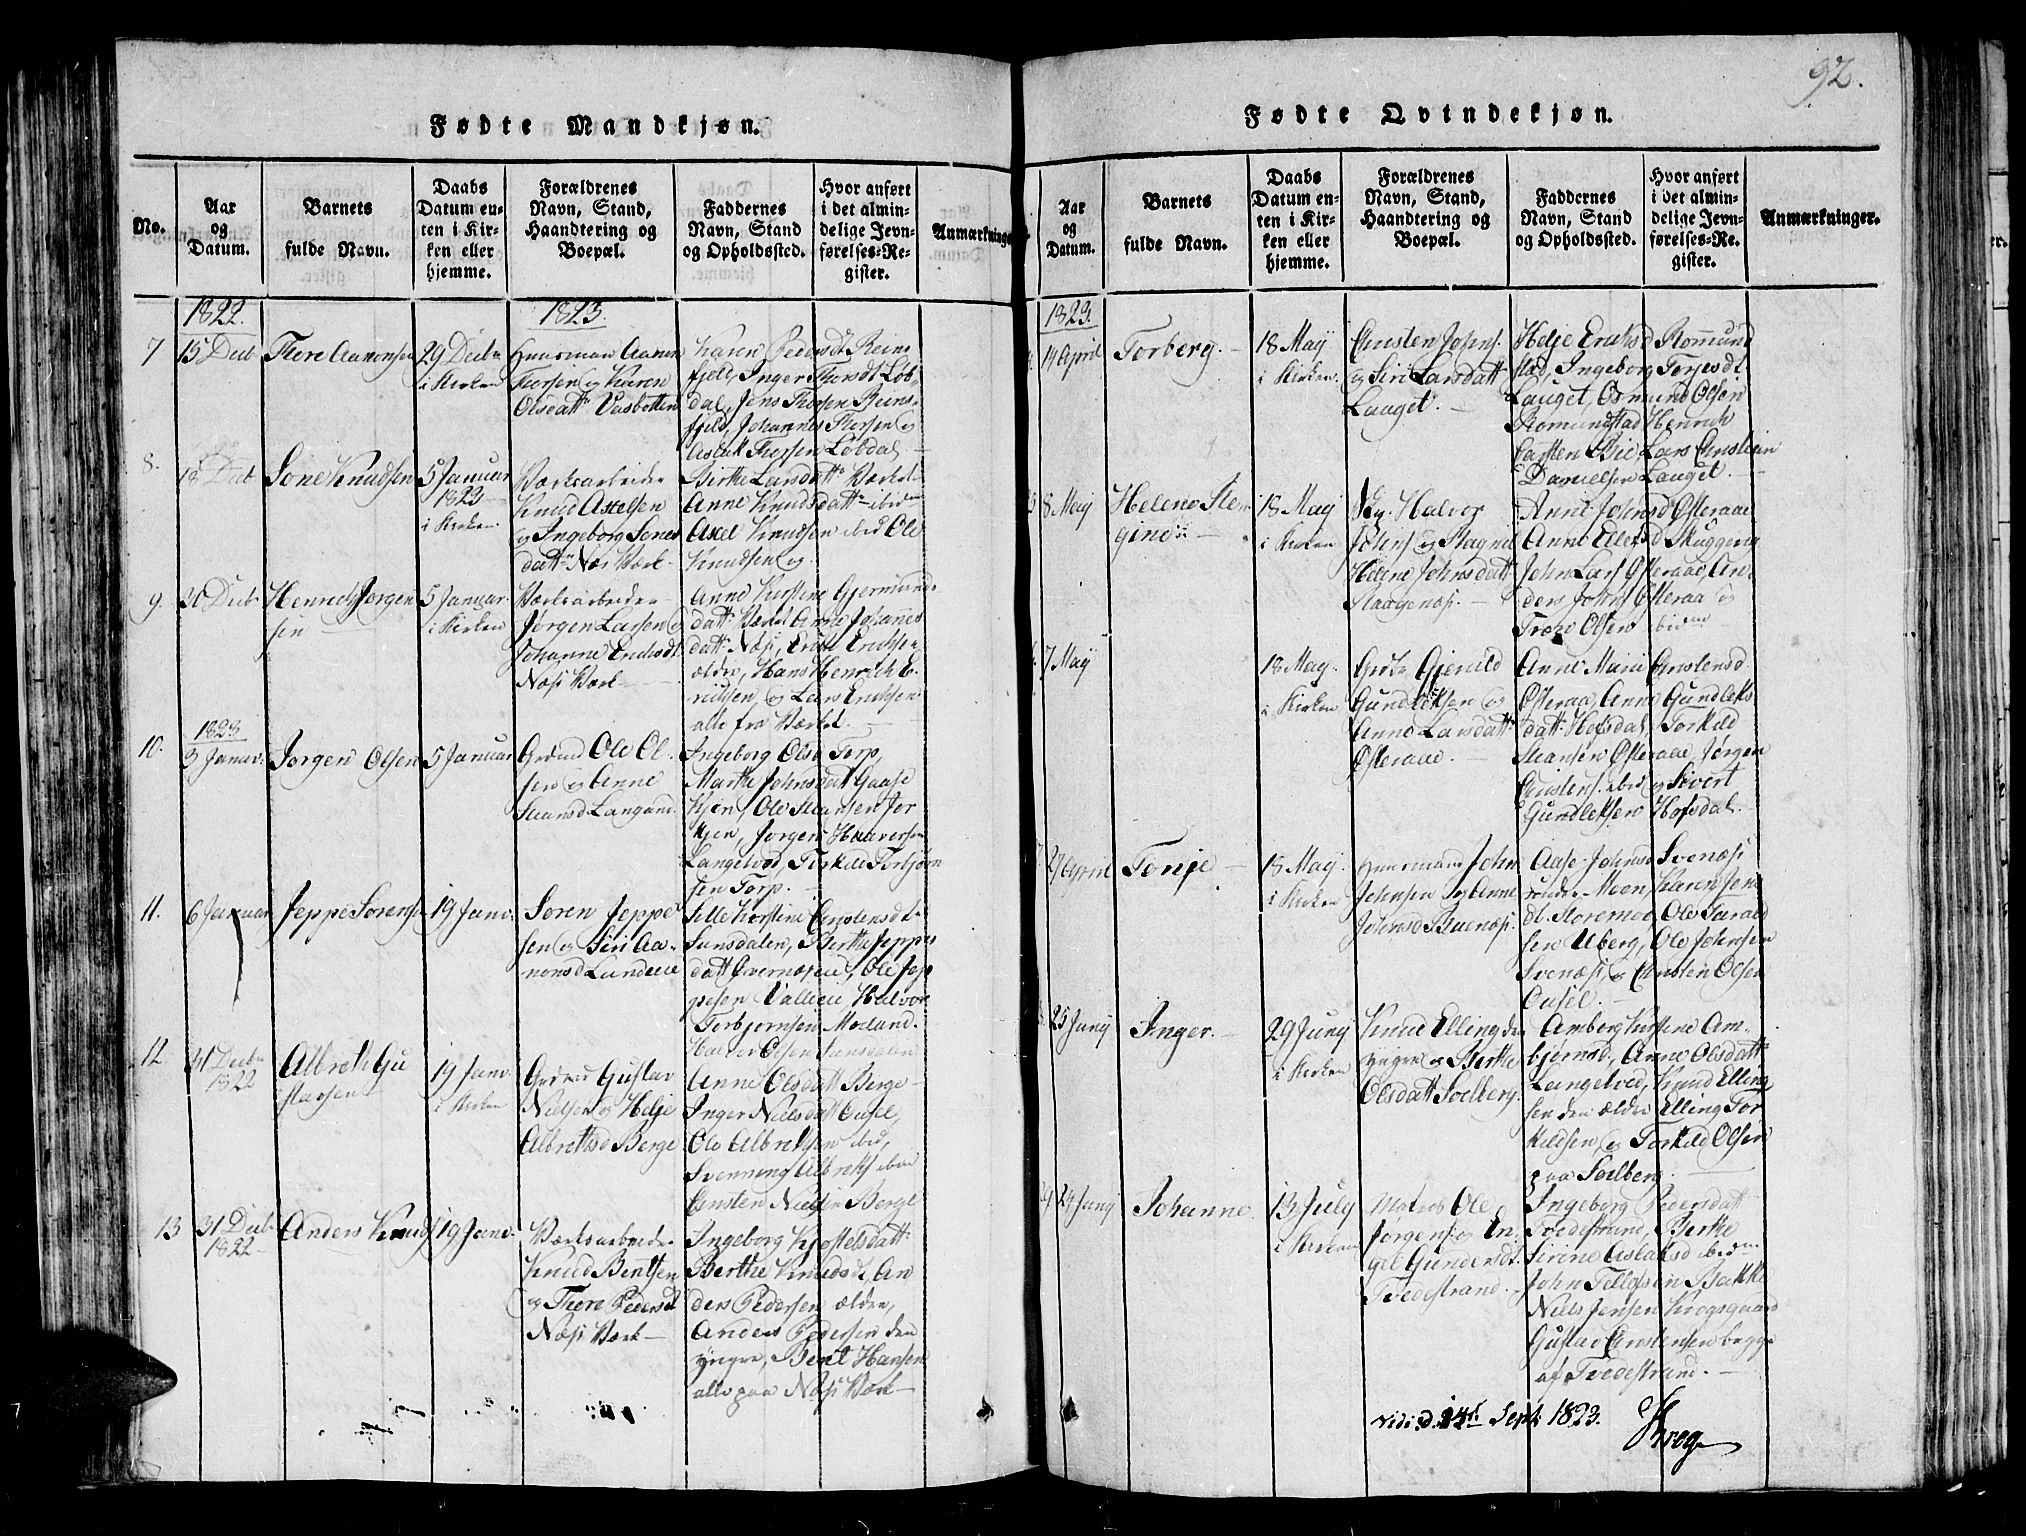 92.
Fødte Mandkjøn.
No.
Aar og Datum.
Barnets fulde Navn.
Daabs Datum enten i Kirken eller hjemme.
Forældrenes Navn, Stand, Haandtering og Boepæl.
Faddernes Navn, Stand og Opholdssted.
Hvor anført i det almindelige Jevnførelses-Register.
Anmærkninger
1822.
1823.
7
15 Decb
Thore Aanonsen
29 Decbr
i Kirken
Huusmand Aanon
Thorsen og Karen
Olsdatt Vasbotten
Karen Pedersdt Rein
fjeld, Inger Thorsdt Løb
dal, Jens Thorsen Reins
fjeld, Johannes Thorsen og
Aslak Thorsen Løbdal
8.
18 Decb
Sone Knudsen
5 Januar
1823
i Kirken
Værksarbeider
Knud Axelsen
og Ingeborg Sones
datt Næs Værk
Birthe Larsdatt Værket
Anne Knudsdatt ibid
Axel Knudsen ibid Ole
Knudsen og
9.
30 Decb
Henrich Jørgen
sen
5 Januar
i Kirken
Værksarbeider
Jørgen Larsen og
Johanne Ericksdt
Næs Værk
Anne Kirstine Gjermunds
datt Værket Anne Johannes
datt Næs, Erik Ericksen
ældre, Hans Henrich E
ricksen, og Lars Ericksen
alle fra Værket
1823
10.
3 Januar.
Jørgen Olsen
5 Januar
Grdmd Ole Ol
sen og Anne
Steansd Langand
Ingeborg Olsd Torp,
Marthe Johnsdatt Gaase
kjen, Ole Steansen Jor
kjen, Jørgen Halvorsen
Langetved, Terkild Torbjørn
sen Torp.
11.
6 Januar
Jeppe Sørensen
19 Janv.
Søren Jeppe
sen og Siri Aa
nonsd Lundeie
Sille Kirstine Christensdt.
Sunsdalen, Berthe Jeppes
datt Qvernæseie, Ole Jep
pesen Valleeie Halvor
Torbjørnsen Morland.
Halvor Olsen Sunsdalen
12
31 Decbr
1822
Albreth Gu
stavsen
19 Janv.
i Kirken
Grdmd Gustav
Nielsen og Helje
Albrethsd Berge
Anne Olsdatt Berge
Inger Nielsdatt Ousel,
Ole Albrethsen ibid,
Svennung Albreths ibm
Christen Nielsen Berge
13
31 Decb
1822
Anders Knuds
19 Janv.
Værksarbeider
Knud Bentsen
og Thore Pedersdt
Næs Værk
Ingeborg Kjøstelsdatt
Berthe Knudsd, An
ders Pedersen ældre,
Anders Pedersen den
yngre, Bent Hansen
alle paa Næs Værk
Fødte Qvindekjøn.
Aar og Datum.
Barnets fulde Navn.
Daabs Datum enten i Kirken eller hjemme.
Forældrenes Navn, Stand, Haandtering og Boepæl.
Faddernes Navn, Stand og Opholdssted.
Hvor anført i det almindelige Jevnførelses-Register.
Anmærkninger.
1823.
14 April
Torberg.
18 Maij
i Kirken.
Christen Johns.
og Siri Larsdatt
Lauget.
Helje Ericksd Rommund
stad, Ingeborg Torjesdt.
Lauget, Osmund Olsen
Romundstad Henrich
Carsten Bie, Lars Christian
Danielsen Lauget.
8 Maij
Helene Ste
gine
18 Maij
i Kirken
Halvor
Johns og Ragnil
Helene Johnsdatt
Staagenæs.
Anne Johnsd Østeraae
Anne Ellefsd Skuggevig
John Lars Østeraae, An
ders Johns Østeraa og
Tron Olsen ibidm
7 Maij
18 Maij.
i Kirken
Gjeruld
Gundleksen og
Anne Larsdatt
Østeraae.
Anne Marie Christensd
Østeraa, Anne Gundleks
datt Hofsdal, Torkild
Steansen Østeraae, Jørgen
Christens. ibid og Sivert
Gundleksen Hofsdal.
27 April
Tonje
18 Maij.
i Kirken
Huusmand John
Johnsen og Anne
Johnsd Svenæs.
Aase Johnsd Svenæs
Moen, Karen Jon
dt. Storemoe, Ole Tarald
sen Uberg, Ole Johnsen
Svenæs, og Christen Olsen
Ousel.
25 Junij
Inger.
29 Junij
i Kirken
Knud Elling den
yngre og Berthe
Olsdatt Soelberg.
Amberg Kirstine Am
bjørnsd, Anne Olsdatt
Langetved, Knud Elling
sen den ældre Elling Tor
kildsen, og Torkild Olsen
paa Soelberg.
9
24 Junij
Johanne
13 July
i Kirken
Matros Ole
Jørgens og En
gel Gundersdt.
Tvedestrand.
Ingeborg Pedersdatt
Tvedestrand, Berthe
Sirine Aslaksd ibidm
John Tellefsen Bakke
Niels Jensen Krogsgaard
Gustav Christensen begge
af Tvedestrand.
Vidi d. 14t Sept 1823.
Krog